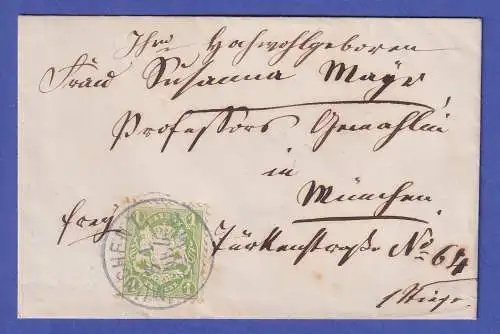 Ihro Hochwohlgeboren
Frau Susanna Mayr
Professors Gemahlin
in
München
frey
Türkenstraße No 64
1